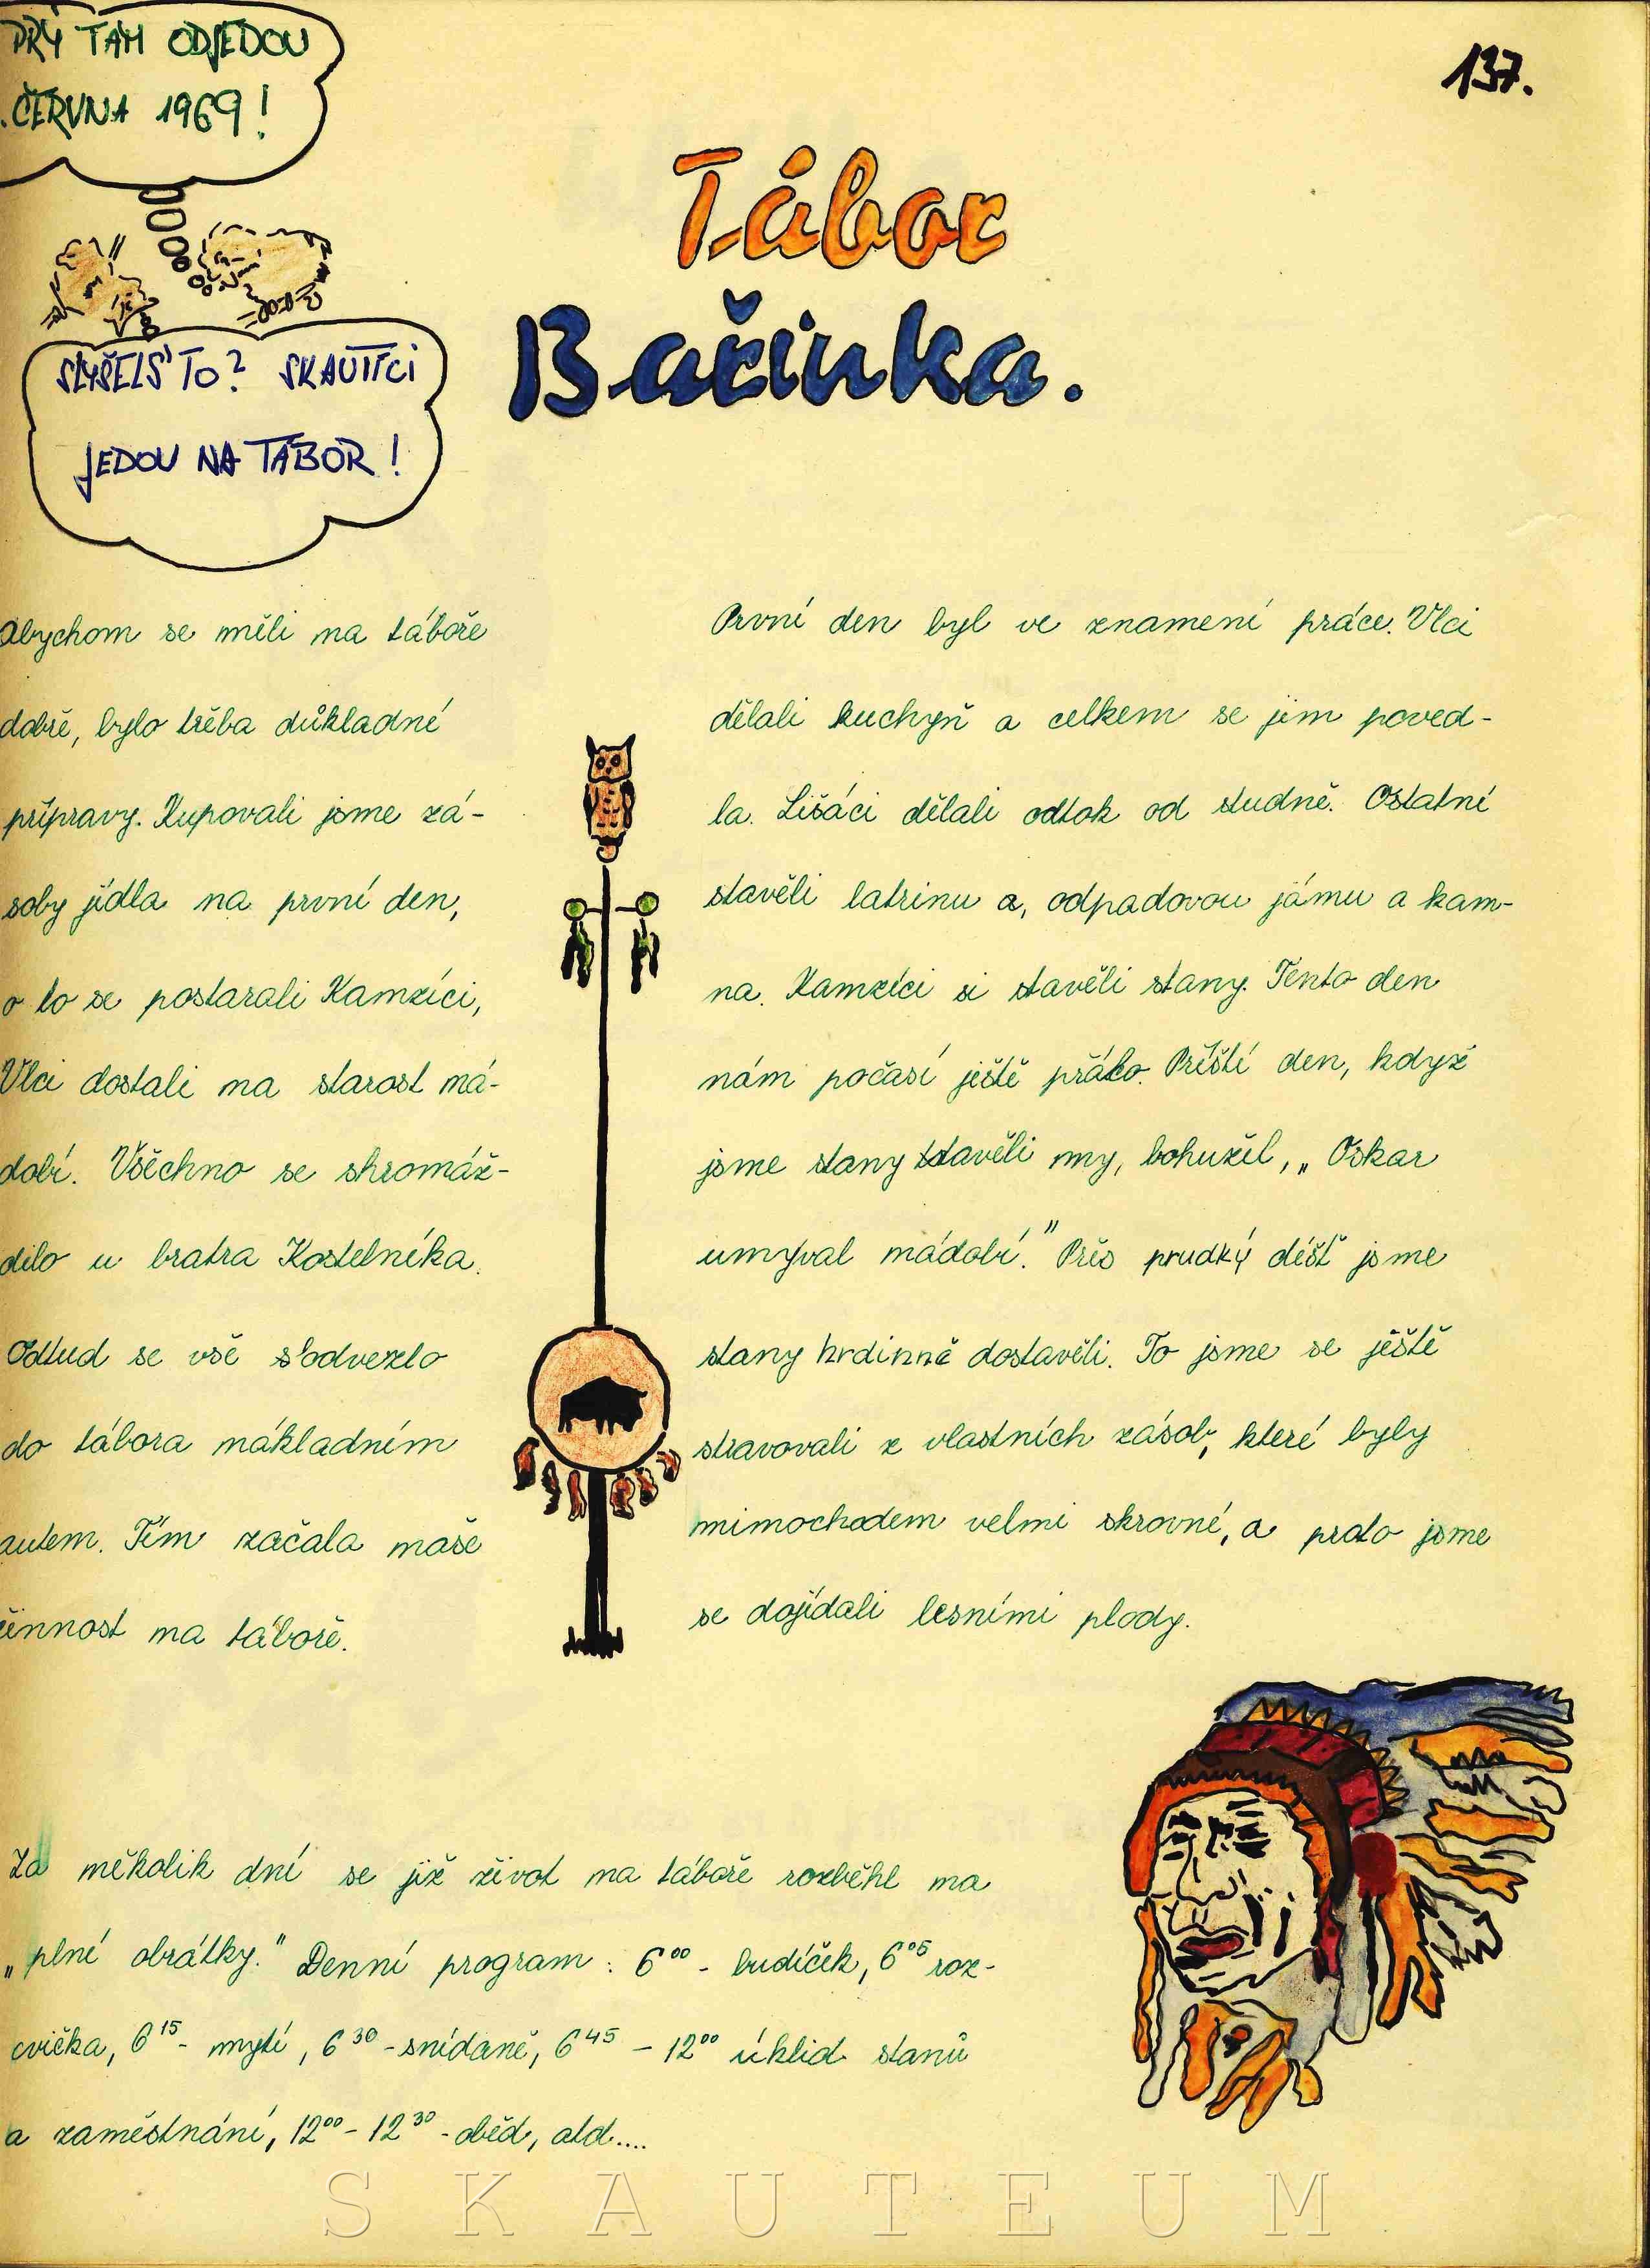 137.
PRÝ TAM ODJEDOU
.ČERVNA 1969!
SLYŠELS TO? SKAUTÍCI
JEDOU NA TÁBOR!
Tábor
Bačinka.
Abychom se měli na táboře
dobře, bylo třeba důkladné
přípravy. Kupovali jsme zá-
soby jídla na první den,
o to se postarali Kamzíci,
Vlci dostali na starost ná-
dobí. Všechno se shromáž-
dilo u bratra Kostelníka.
Odtud se vše odvezlo
do tábora nákladním
autem. Tím začala naše
činnost na táboře.
První den byl ve znamení práce. Vlci
dělali kuchyň a celkem se jim poved-
la. Lišáci dělali odtok od studně. Ostatní
stavěli latrinu a, odpadovou jámu a kam-
na. Kamzíci si stavěli stany. Tento den
nám počasí ještě přálo. Příští den, když
jsme stany stavěli my, bohužel, „Oskar
umýval nádobí." Přes prudký déšť jsme
stany hrdinně dostavěli. To jsme se ještě
stravovali z vlastních zásob, které byly
mimochodem velmi skrovné, a proto jsme
se dojídali lesními plody.
Za několik dní se již život na táboře rozběhl na
„plné obrátky." Denní program: 6⁰⁰ - budíček, 6⁰⁵ roz-
cvička, 6¹⁵ - mytí, 6³⁰ - snídaně, 6⁴⁵ - 12⁰⁰ úklid stanů
a zaměstnání, 12⁰⁰ - 12³⁰ - oběd, atd....
SKAUTEUM